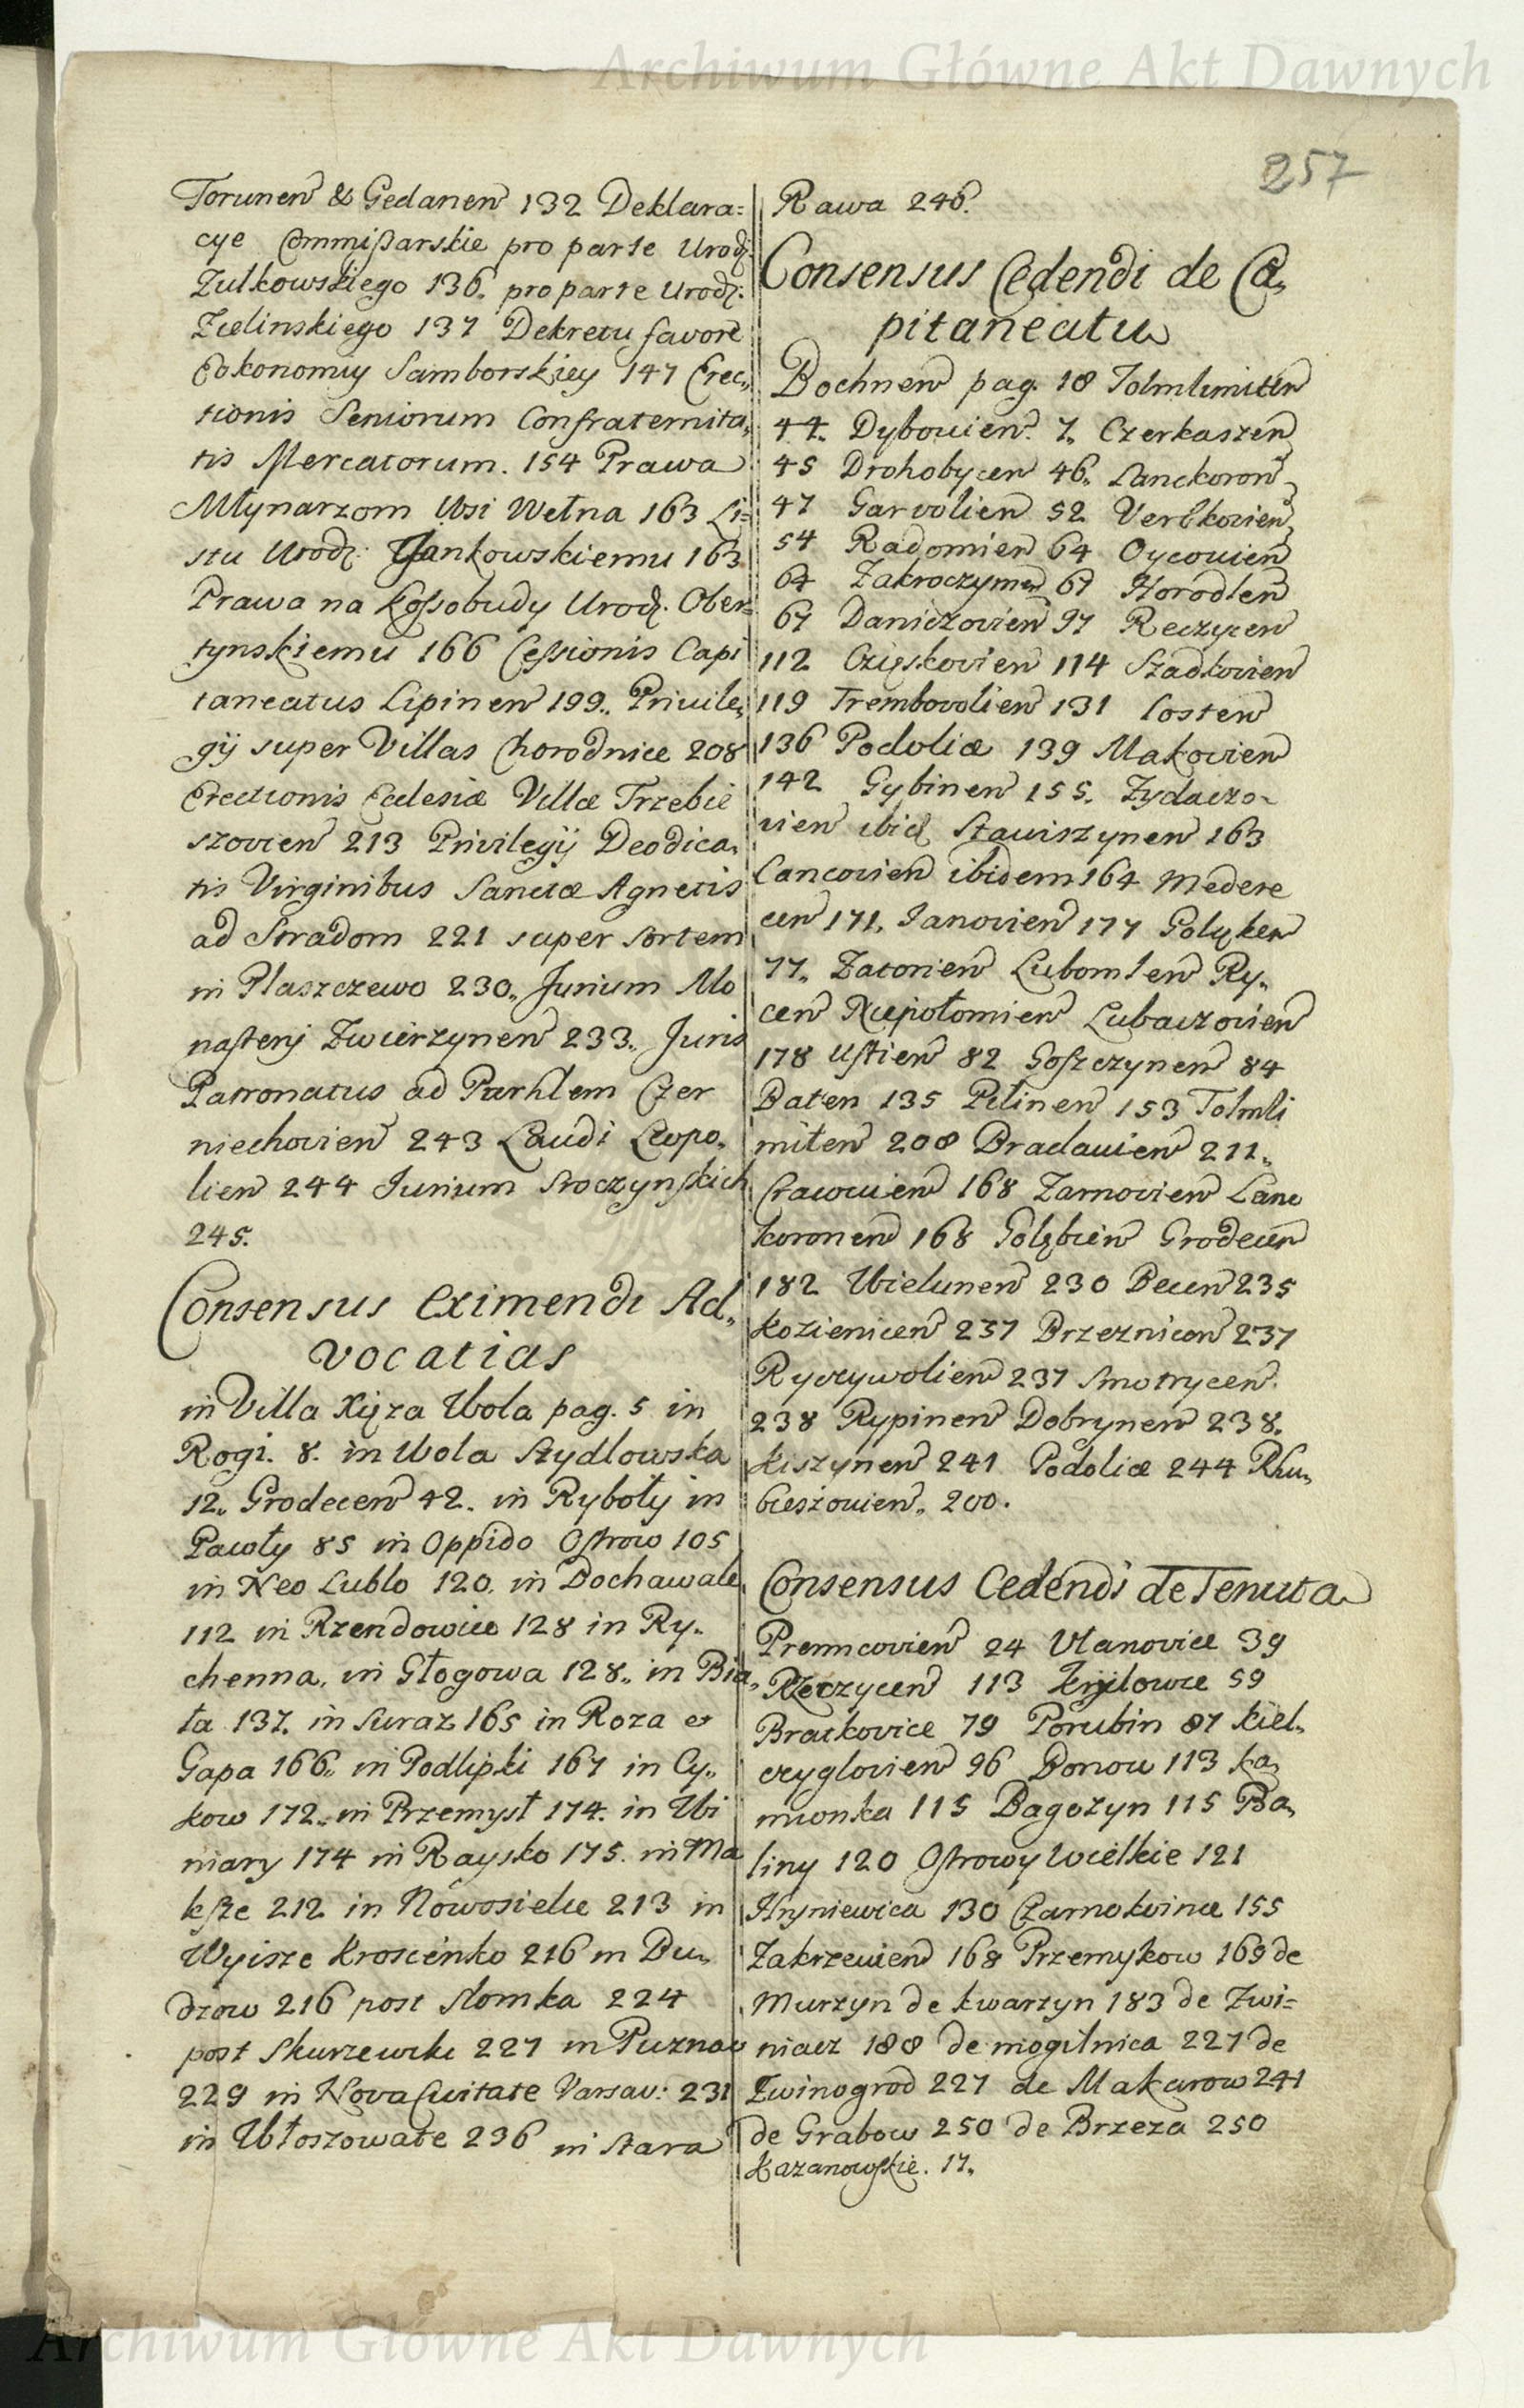 Archiwum Główne Akt Dawnych
257
Torunen & Gedanen 132 Deklara=
cye Commißarskie pro parte Urodz:
Zulkowskiego 136. pro parte Urodz:
Zielinskiego 137 Dekretu favore
Eokonomiy Samborskiey 147 Erec„
tionis Seniorum Confraternita„
tis Mercatorum. 154 Prawa
Młynarzom Wsi Wełna 163 Li=
stu Urodz: Jankowskiemu 163
Prawa na Kossobudy Urodz. Ober=
tynskiemu 166 Cessionis Capi
taneatus Lipinen 199„ Privile„
gÿ super Villas Chorodnice 208
Erectionis Ecclesiæ Villæ Trzebie
szovien 213 Privilegÿ Deodica„
tis Virginibus Sanctæ Agnetis
ad Stradom 221 super sortem
in Plaszczewo 230„ Jurium Mo
nasterj Zwierzynen 233„ Juris
Patronatus ad Parhlem Czer
niechovien 243 Laudi Leopo„
lien 244 Jurium Sroczynskich
245.
Consensus Eximendi Ad„
vocatias
in Villa Xięza Wola pag. 5 in
Rogi. 8. in Wola Szydlowska
12„ Grodecen 42. in Ryboły in
Pawły 85 in Oppido Ostrow 105
in Neo Lublo 120. in Dochawale
112 in Rzendowice 128 in Ry„
chenna, in Głogowa 128„ in Bia„
ła 137. in Suraz 165 in Roza et
Gapa 166„ in Podlipki 167 in Cy„
kow 172„ in Przemysł 174. in Wi
niary 174 in Raysko 175. in Ma
ksze 212 in Nowosielce 213 in
Wyisze Kroscienko 216 in Du„
dzow 216 post Słomka 224
post Skurzewski 227 in Puznow
229 in Nova Civitate Varsav: 231
in Włoszowate 236 in Stara
Rawa 246.
Consensus Cedendi de Ca„
pitaneatu
Bochnen pag. 18 Tolmlimiten
44„ Dybovien. 7„ Czerkaszen
45 Drohobycen 46„ Lanckoron
47 Garvolien 52 Verbkovien
54 Radomien 64 Oycovien
64 Zakroczymen 67 Horodlen
67 Daniczovien 97 Reczycen
112 Czięskovien 114 Szadkovien
119 Trembovolien 131 Losten
136 Podoliæ 139 Makovien
142 Gybinen 155. Zydaczo„
vien ibid Stawiszynen 163
Lancovien ibidem 164 Medere
cen 171. Janovien 177 Golyken
77„ Zatorien Lubomlen Ry„
cen Niepołomien Lubaczovien
178 Ustien 82 Goszczynen 84
Baten 135 Pilinen 153 Tolmli
miten 208 Braclavien 211„
Crawvien 168 Zarnovien Lanc
koronen 168 Golębien Grodecen
182 Wielunen 230 Becen 235
Kozienicen 237 Brzeznicen 237
Ryczywolien 237 Smotrycen.
238 Rypinen Dobrynen 238„
Kiszynen 241 Podoliæ 244 Rhu„
bieszovien„ 200.
Consensus Cedendi de Tenuta
Premcovien 24 Ulanovice 39
Rzeczycen 113 Kryłowce 59
Bratkovice 79 Porubin 87 Kiel„
czyglovien 96 Donow 113 Ka„
mionka 115 Bagozyn 115 Ba„
liny 120 Ostrowy Wielkie 121
Hryniewica 130 Czarnokvince 155
Zakrzevien 168 Przemykow 169 de
Murzyn de Kwarzyn 183 de Zwi=
niacz 188 de mogilnica 227 de
Zwinogrod 227 de Makarow 241
de Grabow 250 de Brzeza 250
Kazanowskie. 17„
Archiwum Główne Akt Dawnych